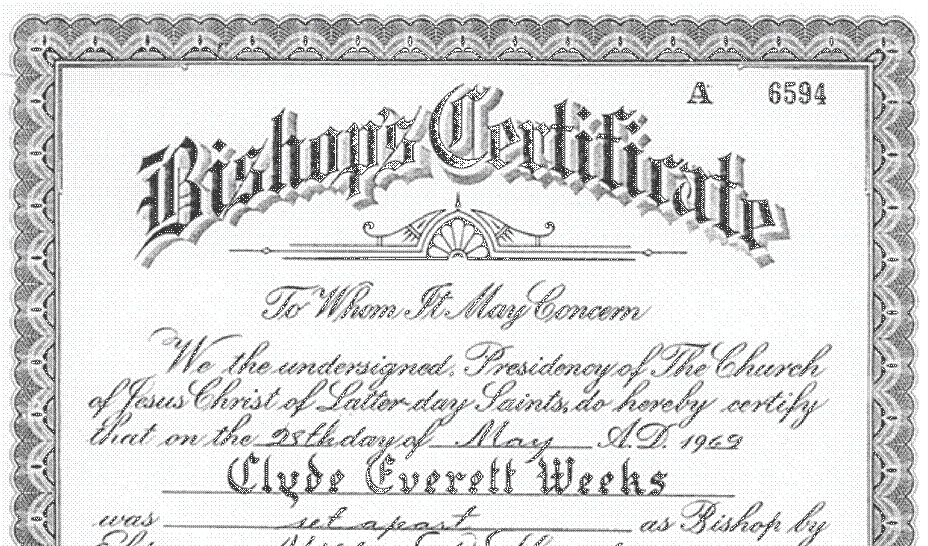 A 6594
Bishop's Certificate
To Whom It May Concern
We the undersigned, Presidency of The Church
of Jesus Christ of Latter-day Saints, do hereby certify
that on the 28th day of May A.D. 1969
Clyde Everett Weeks
was set apart as Bishop by